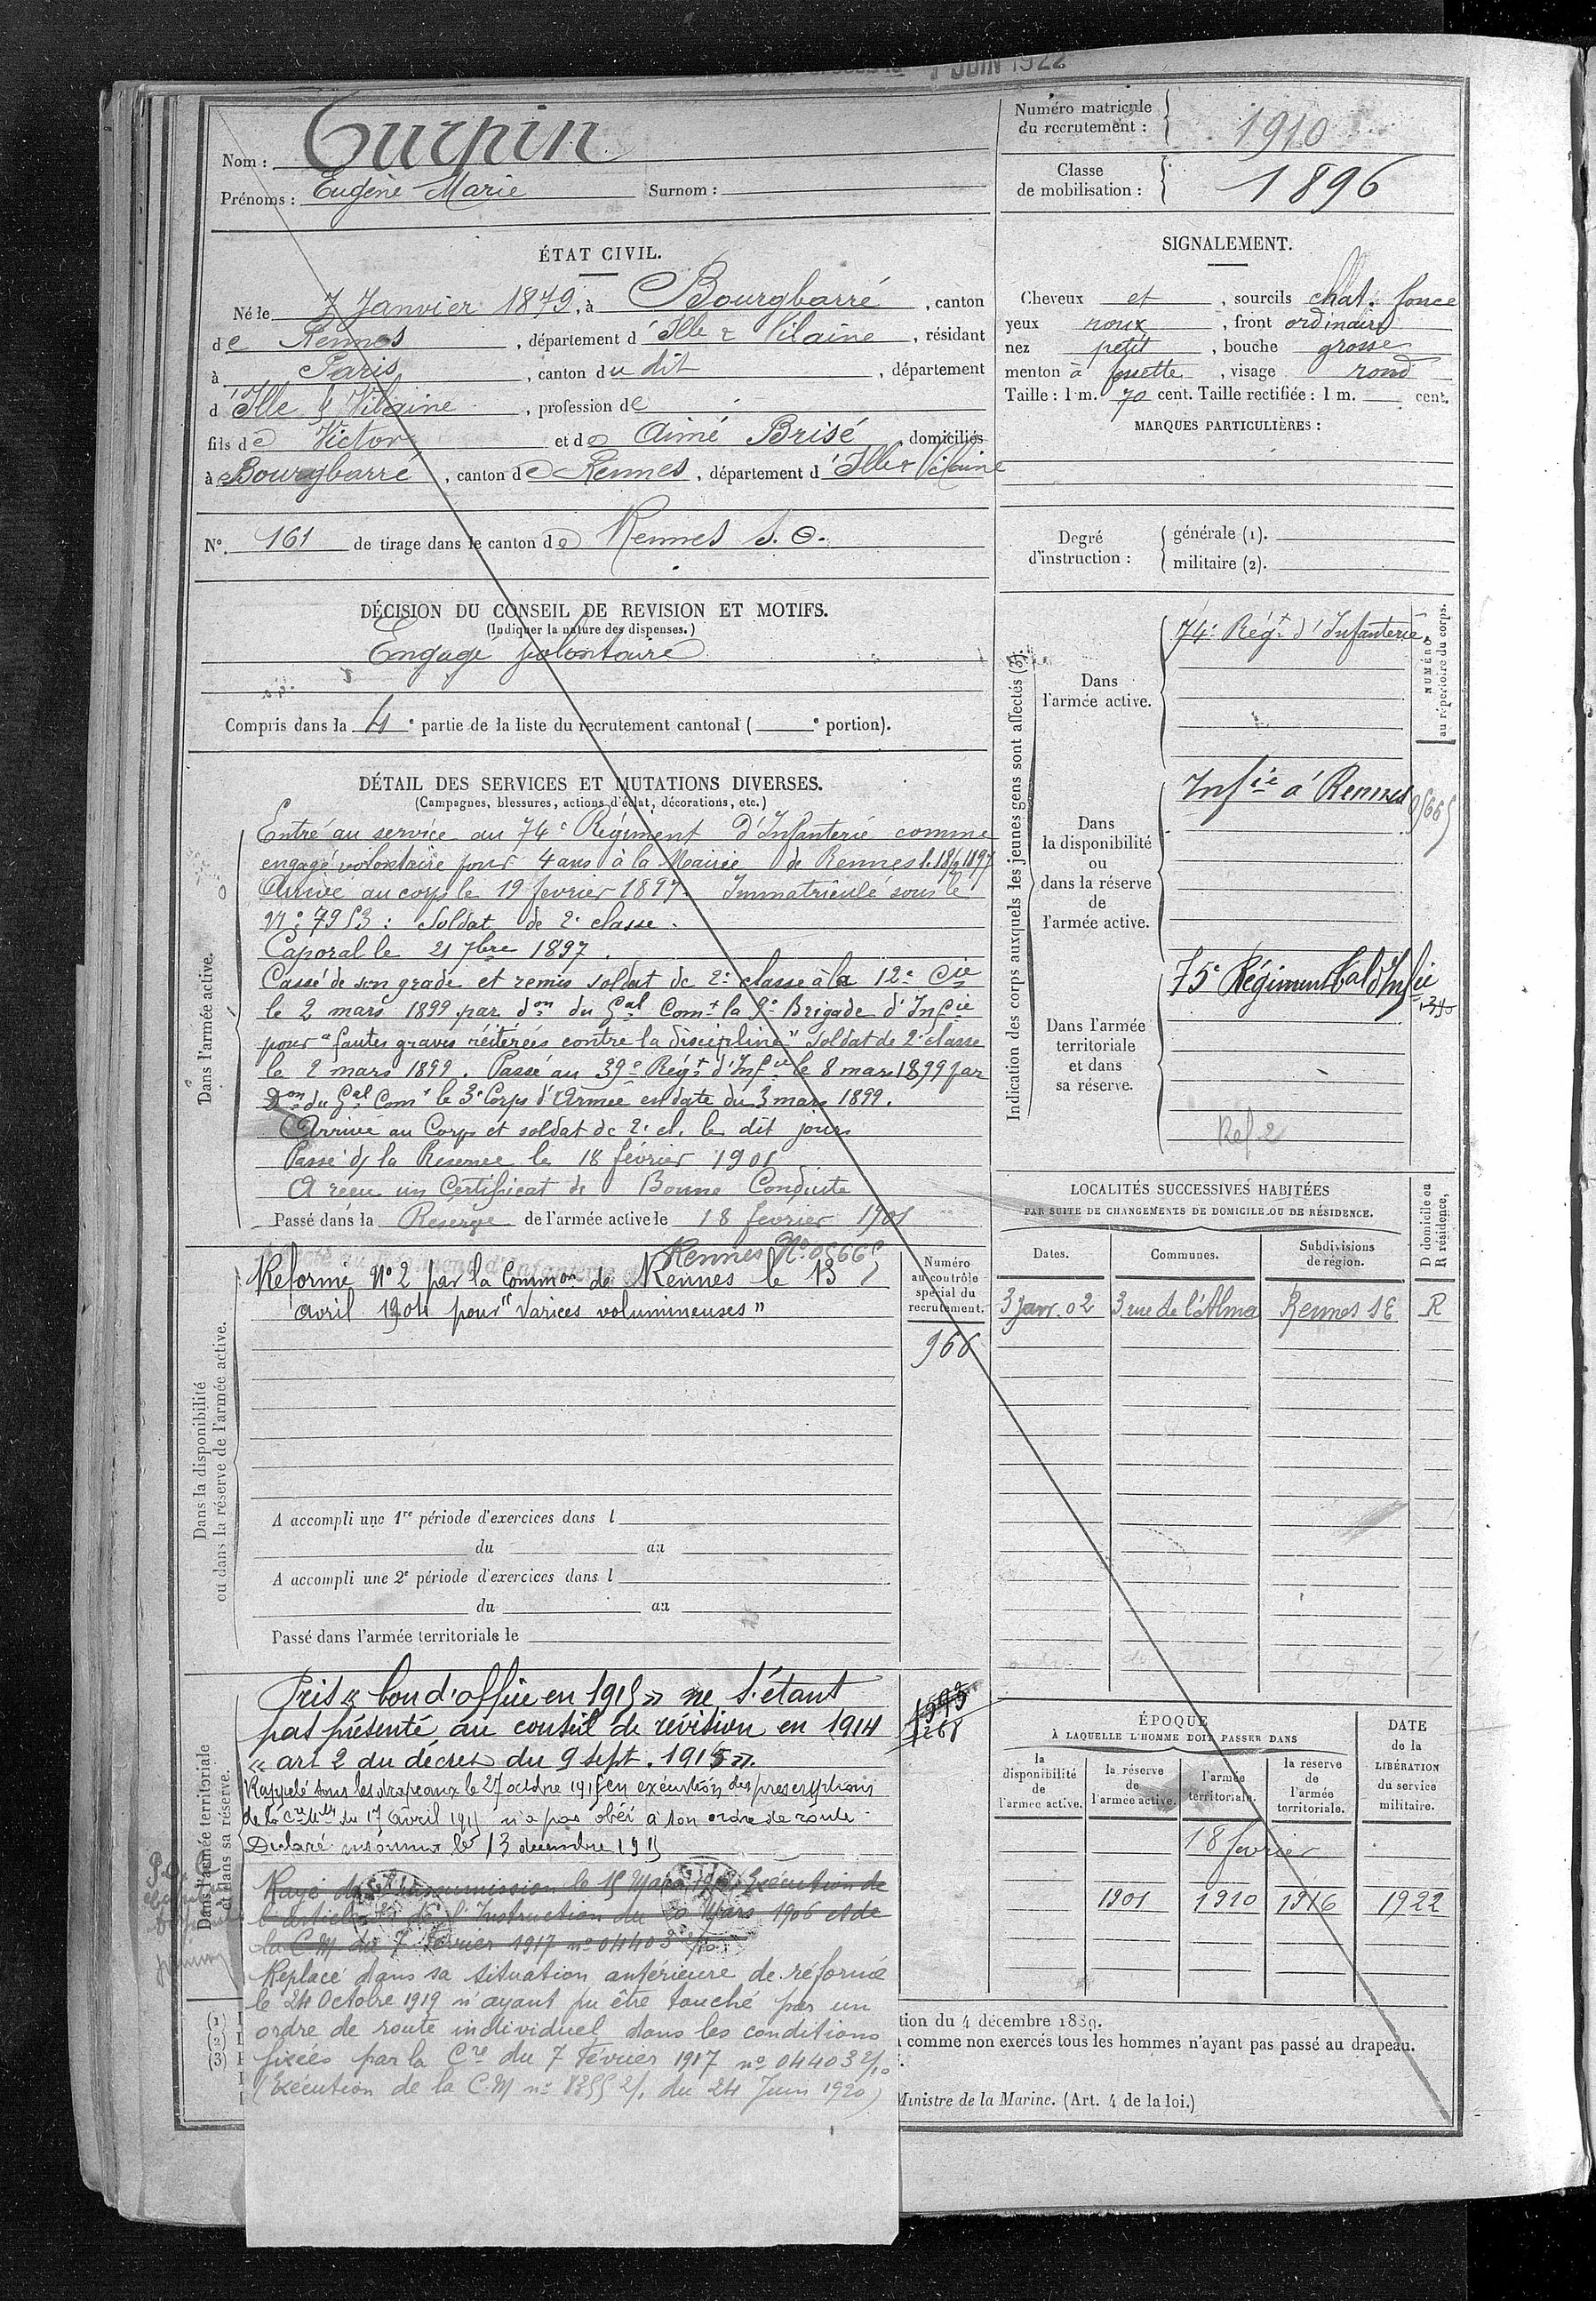 JUIN 1922
Nom : Turpin
Prénoms : Eugène Marie Surnom :
Numéro matricule du recrutement : 1910
Classe de mobilisation : 1896
ÉTAT CIVIL.
Né le 7 Janvier 1879, à Bourgbarré, canton
de Rennes, département d'Ille & Vilaine, résidant
à Paris, canton du dit, département
d'Ille & Vilaine, profession de
fils de Victor et de Aimé Brisé, domiciliés
à Bourgbarré, canton de Rennes, département d'Ille & Vilaine
N°. 161 de tirage dans le canton de Rennes S. O.
SIGNALEMENT.
Cheveux et, sourcils chat. foncé
yeux roux, front ordinaire
nez petit, bouche grosse
menton à fossette, visage rond
Taille : 1 m. 70 cent. Taille rectifiée : 1 m. cent.
MARQUES PARTICULIÈRES :
Degré d'instruction : générale (1).
militaire (2).
DÉCISION DU CONSEIL DE REVISION ET MOTIFS.
(Indiquer la nature des dispenses.)
Engagé volontaire
Compris dans la 4e partie de la liste du recrutement cantonal ( e portion).
DÉTAIL DES SERVICES ET MUTATIONS DIVERSES.
(Campagnes, blessures, actions d'éclat, décorations, etc.)
Dans l'armée active.
Entré au service au 74e Régiment d'Infanterie comme
engagé volontaire pour 4 ans à la Mairie de Rennes l. 18/2 1897
Arrivé au corps le 19 février 1897. Immatriculé sous le
n° 7953 : Soldat de 2e classe.
Caporal le 21 7bre 1897.
Cassé de son grade et remis soldat de 2e classe à la 12e Cie
le 2 mars 1899 par don du Gal Comt la 9e Brigade d'Infie
pour "fautes graves réiterées contre la discipline" Soldat de 2e classe
le 2 mars 1899. Passé au 39e Régt d'Infie le 8 mars 1899 par
Don du Gal Comt le 3e Corps d'Armée en date du 3 mars 1899.
Arrivé au Corps et soldat de 2e cl. le dit jour
Passé ds la Réserve le 18 février 1901
A reçu un Certificat de Bonne Conduite
Passé dans la Réserve de l'armée active le 18 février 1901
Rennes N° 05665
Dans la disponibilité
ou dans la réserve de l'armée active.
Réformé N° 2 par la Common de Rennes le 13
avril 1904 pour "Varices volumineuses"
Numéro au contrôle spécial du recrutement.
968
A accompli une 1re période d'exercices dans l
du au
A accompli une 2e période d'exercices dans l
du au
Passé dans l'armée territoriale le
Dans l'armée territoriale
et dans sa réserve.
Pris « bon d'office en 1915 » ne s'étant
pas présenté au conseil de révision en 1914
« art 2 du décret du 9 sept. 1915 ».
Rappelé sous les drapeaux le 27 octobre 1915 en exécution des prescriptions
de la Cre Mlle du 17 avril 1915 n'a pas obéi à son ordre de route
Déclaré insoumis le 13 décembre 1915
1268
Rayé de l'insoumission le 15 Mars Exécution de
l'article de l'Instruction du 20 Mars 1906 et de
la C.M du 7 Février 1917 n° 04403 2/10
Replacé dans sa situation antérieure de réformé
le 24 Octobre 1919 n'ayant pu être touché par un
ordre de route individuel dans les conditions
fixées par la Cre du 7 Février 1917 n° 04403 2/10
(Exécution de la C.M n° 8255 2/1 du 24 Juin 1920)
Indication des corps auxquels les jeunes gens sont affectés (3).
NUMÉRO au répertoire du corps.
Dans l'armée active.
74e Régt d'Infanterie
Dans la disponibilité ou dans la réserve de l'armée active.
Infie à Rennes 05665
Dans l'armée territoriale et dans sa réserve.
75e Régiment tal d'Infie
Ref 2
LOCALITÉS SUCCESSIVES HABITÉES
PAR SUITE DE CHANGEMENTS DE DOMICILE OU DE RÉSIDENCE.
Dates. Communes. Subdivisions de région. D domicile ou R résidence.
3 Janv. 02 3 rue de l'Alma Rennes SE R
ÉPOQUE
À LAQUELLE L'HOMME DOIT PASSER DANS
DATE de la LIBÉRATION du service militaire.
la disponibilité de l'armée active. la réserve de l'armée active. l'armée territoriale. la réserve de l'armée territoriale.
18 février
1901 1910 1916 1922
(1)
(2)
(3)
tion du 4 décembre 1889.
comme non exercés tous les hommes n'ayant pas passé au drapeau.
Ministre de la Marine. (Art. 4 de la loi.)